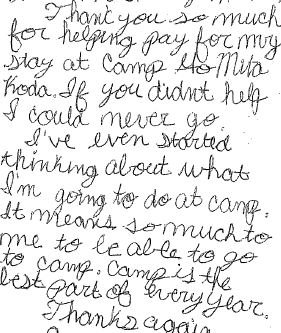 Thank you so much
for helping pay for my
stay at camp to Mita
Koda. If you didn't help
I could never go.
I've even started
thinking about what
I'm going to do at camp.
It means so much to
me to be able to go
to camp. Camp is the
best part of every year.
Thanks again